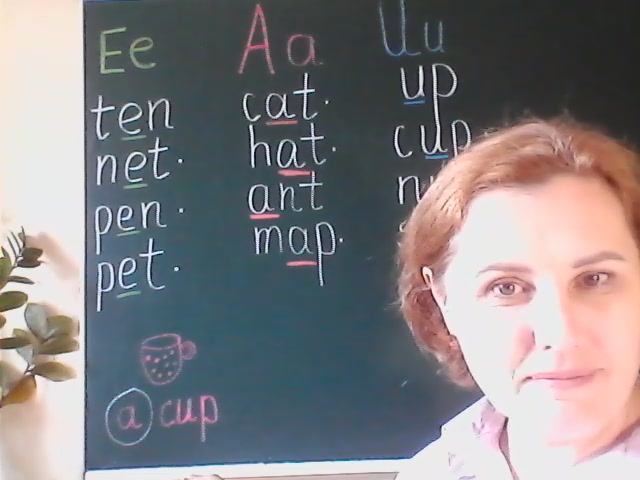 Ee
ten
net.
pen.
pet.
Aa
cat.
hat.
ant
map.
Uu
up
cup
a cup